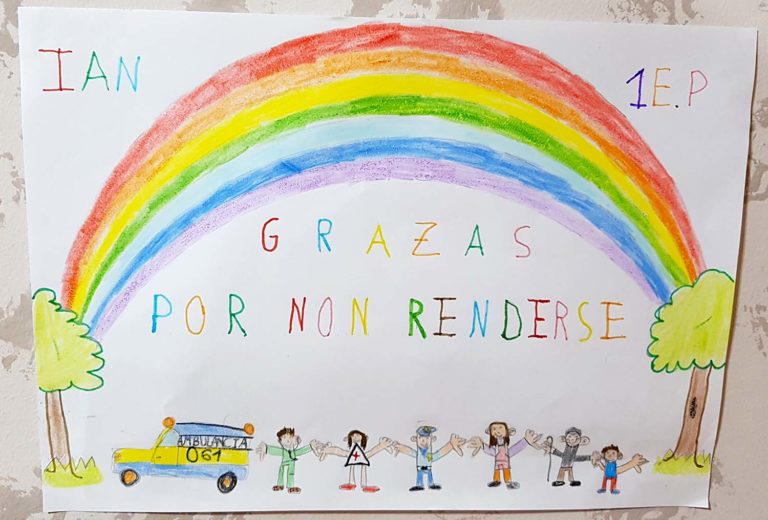 IAN
1E.P
GRAZAS
POR NON RENDERSE
AMBULANCIA
061